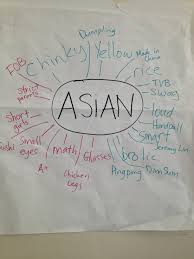 Dumpling
Chinky
Yellow
Made in
China
FOB
rice
TVB
Swag
Strict
parents
ASIAN
loud
Short
smart
Jeremy Lin
Small
eyes
math
Glasses
brolic
A+
Chicken
legs
Pingpong